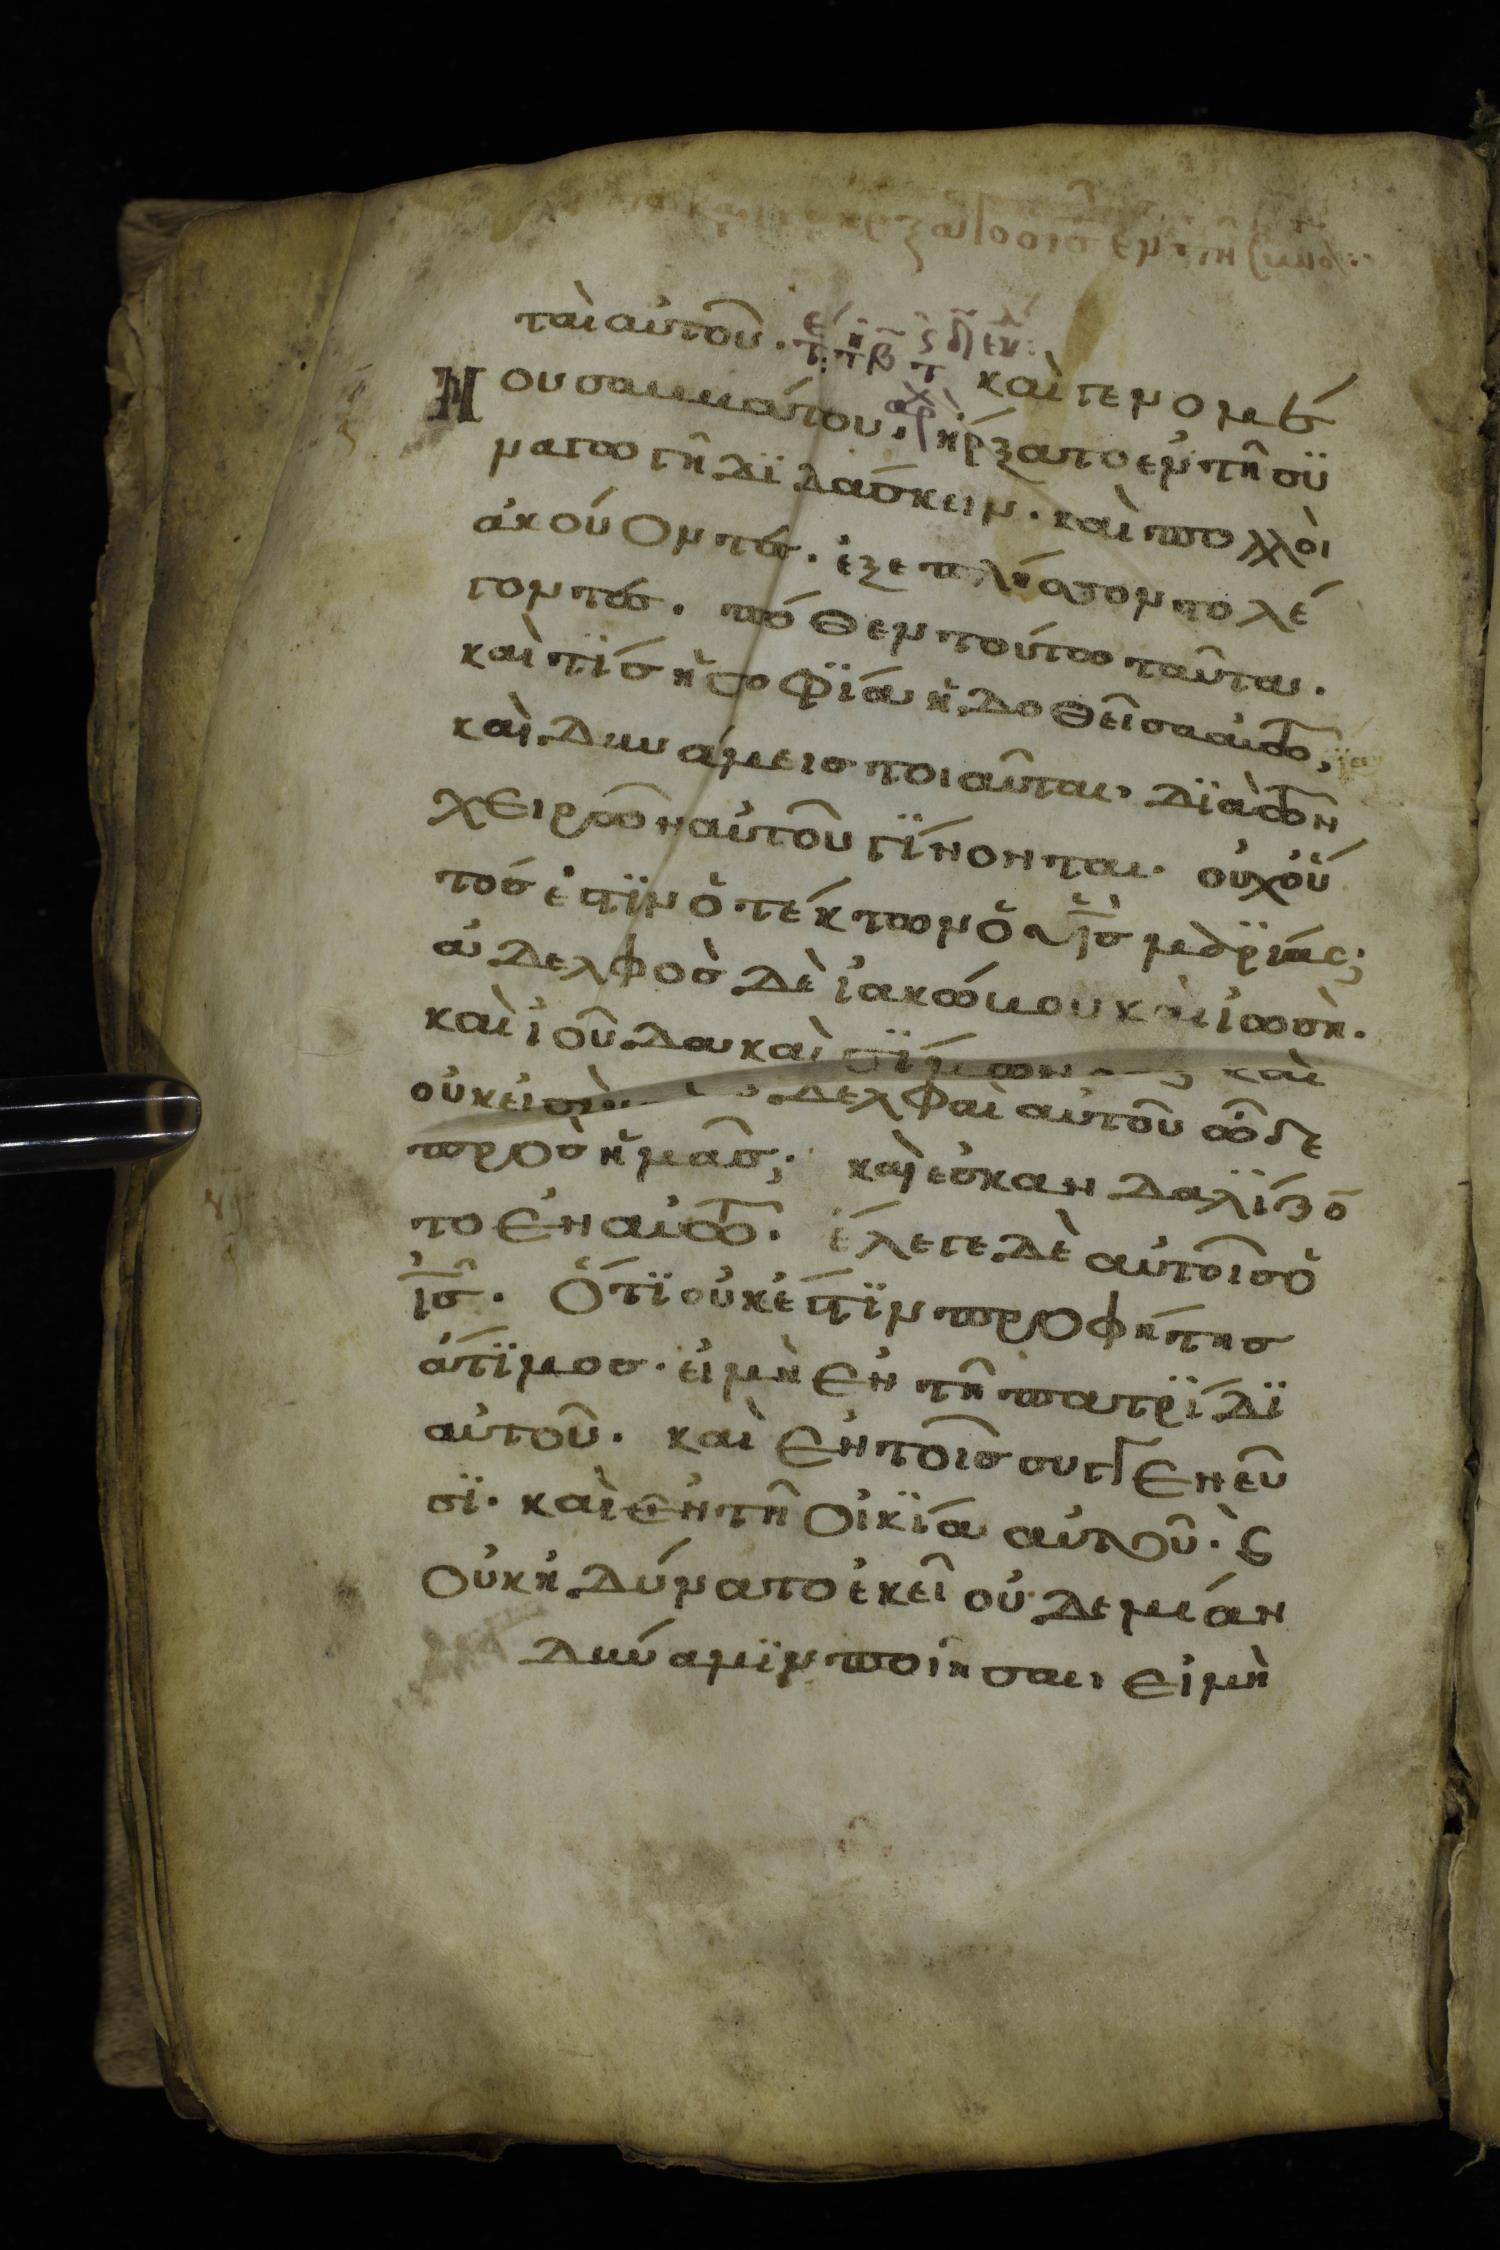 ται αὐτοῦ. καὶ γενομέ
νου σαββάτου, ἤρξατο ἐν τῆ συ
ναγωγῆ διδάσκειν. καὶ πολλοὶ
ἀκούοντες. ἐξεπλήσσοντο λέ
γοντες. πόθεν τούτω ταῦτα.
καὶ τίς ἡ σοφία ἡ δοθεῖσα αὐτῶ,
καὶ δυνάμεις τοιαῦται. διὰ τῶν
χειρῶν αὐτοῦ γίνονται. οὐχ οὗ
τός ἐστϊν ὁ τέκτων ὁ ῡῑς̄ μαρϊας;
ἀδελφὸς δὲ ἰακώβου καὶ ἰωσῆ.
καὶ ἰούδα καὶ σϊμωνος, καὶ
οὐκ εἰσὶν ἀδελφαὶ αὐτοῦ ὧδε
πρὸς ἡμᾶς; καὶ ἐσκανδαλϊζο
το ἐν αὐτῶ. ἔλεγε δὲ αὐτοῖς ὁ
ῑς̄. ὅτϊ οὐκ ἔστϊν προφήτης
ἄτϊμος. εἰ μὴ ἐν τῆ πατρϊδϊ
αὐτοῦ. καὶ ἐν τοῖς συγγενεῦ
σϊ. καὶ ἐν τῆ οἰκϊα αὐτοῦ. ϛ
οὐκ ἠδύνατο ἐκεῖ οὐδεμίαν
δυνάμϊν ποιῆσαι, εἰ μὴ